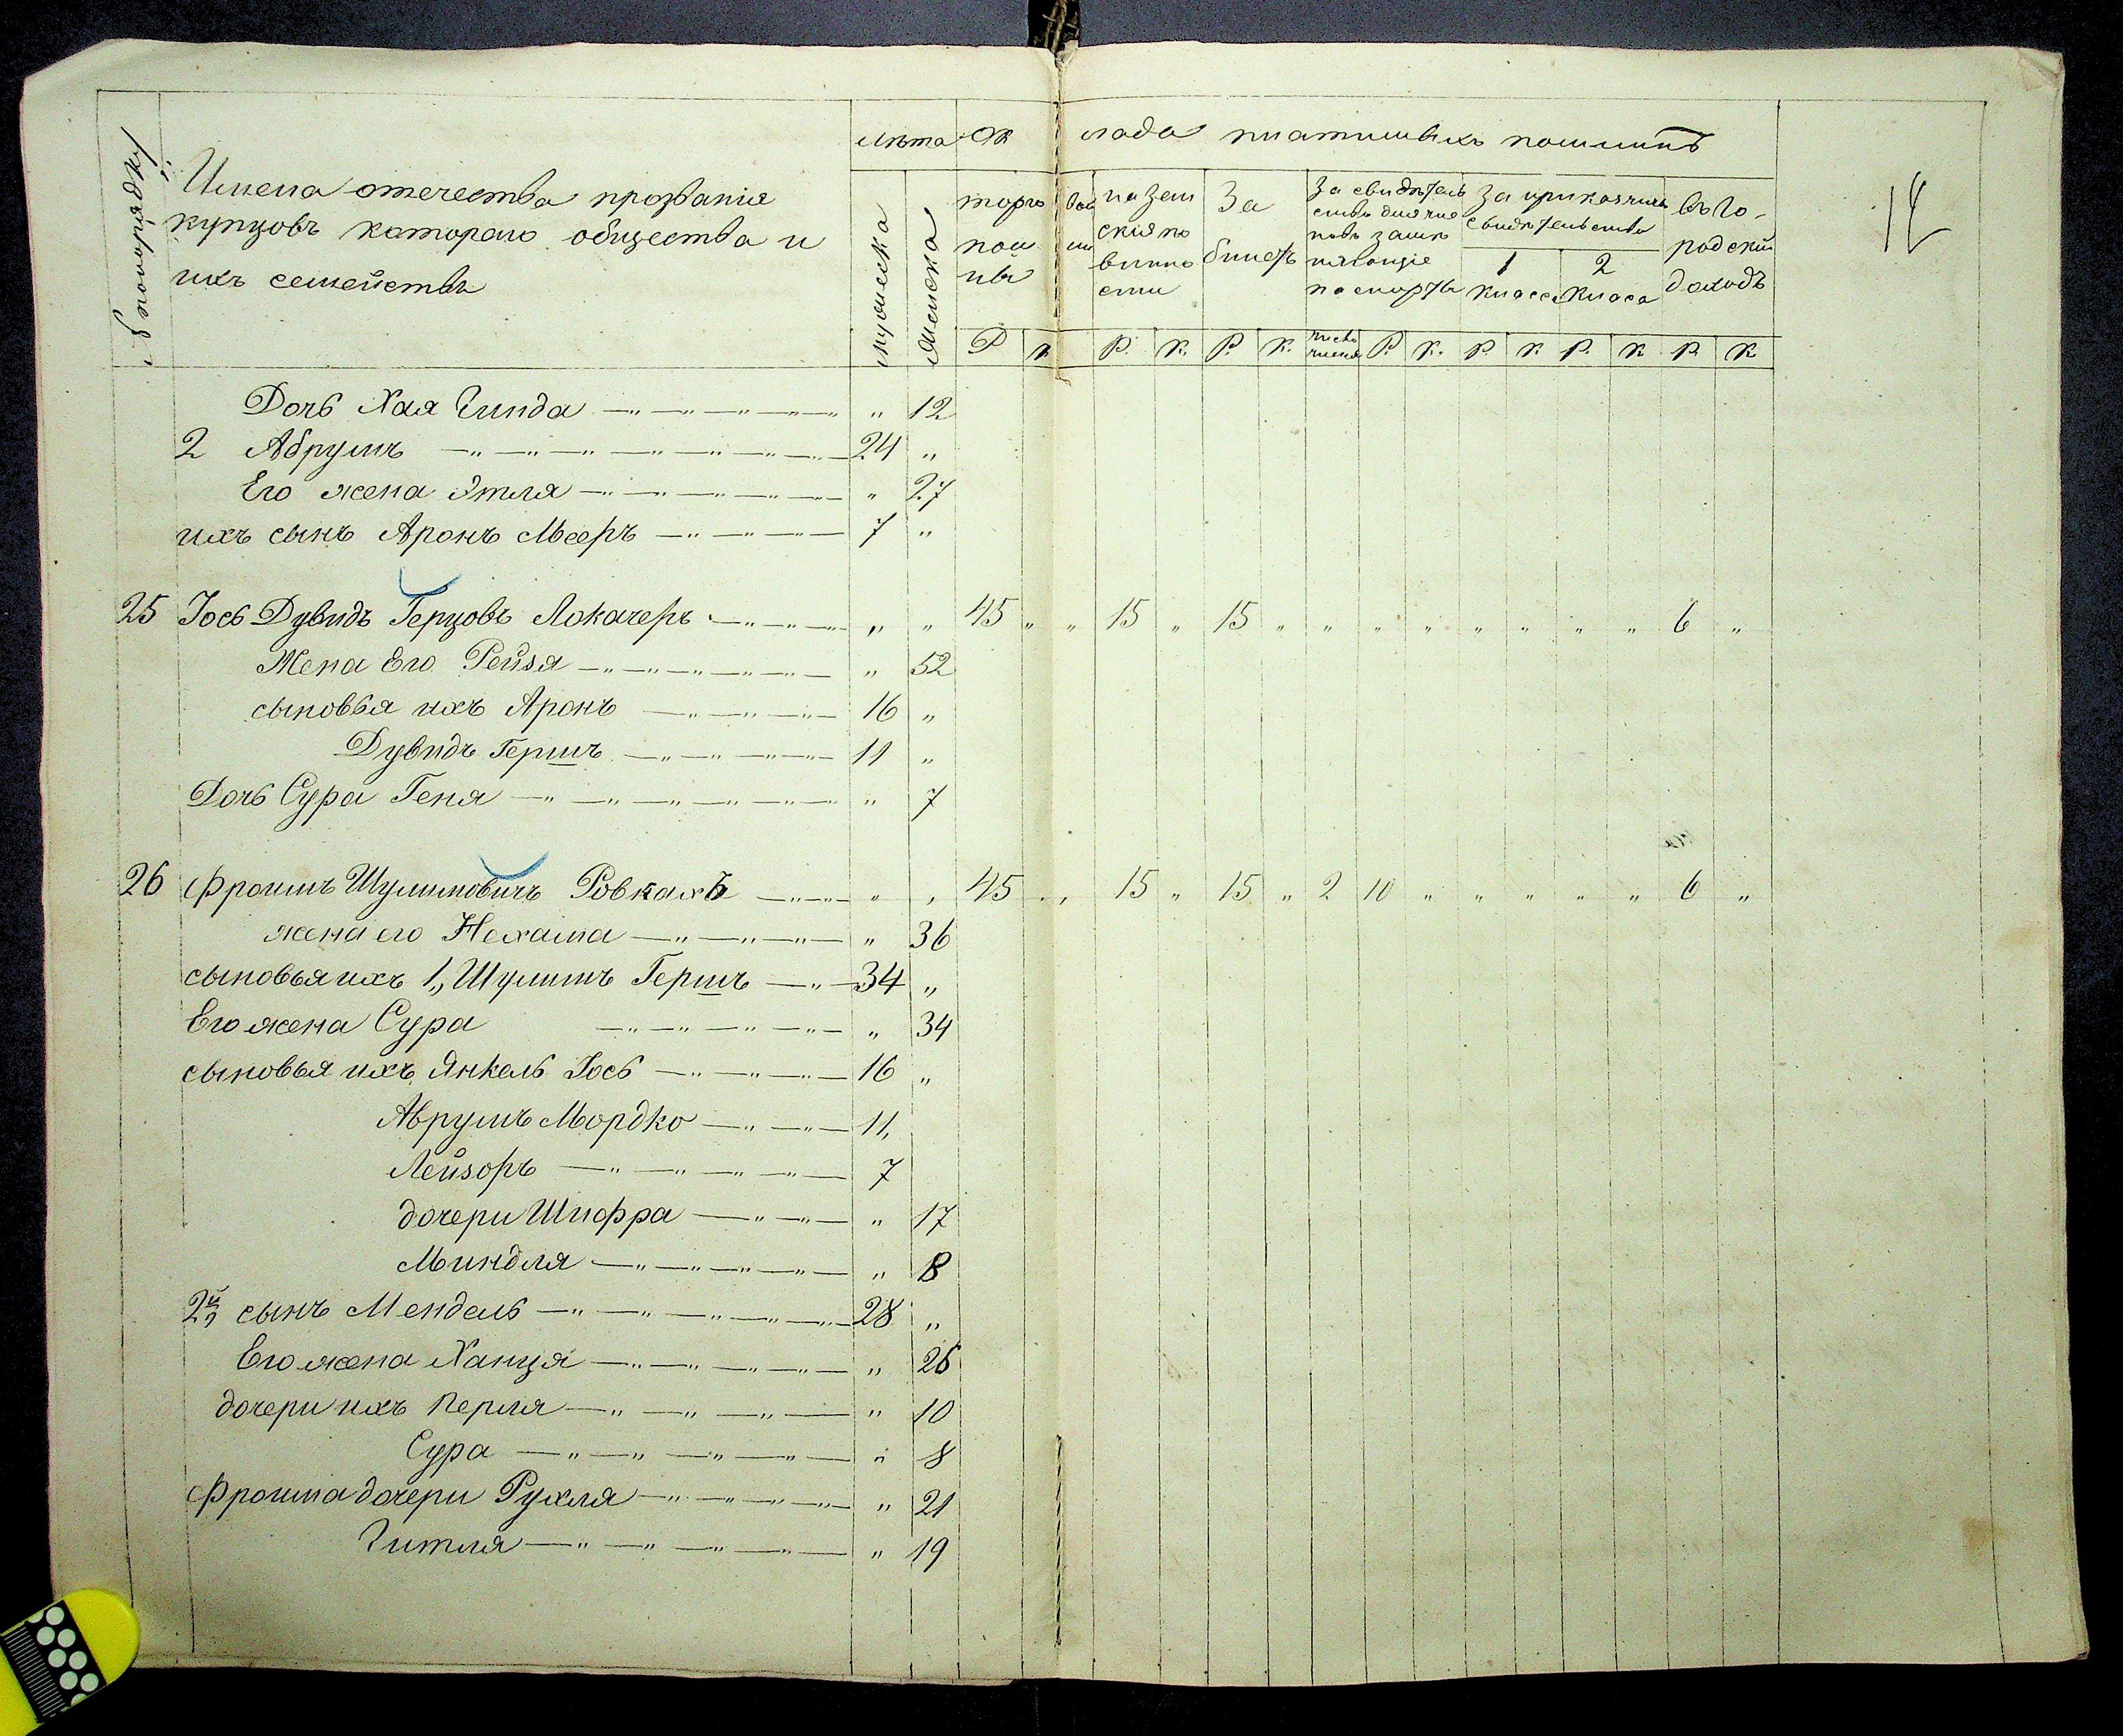 № по порядку
Имена отечества прозванія
купцовъ котораго общества и
ихъ семействъ
Лѣта
мужеска
женска
Оклада платимыхъ пошлинъ
торговой пошлины
на земскія повинности
За билетъ
За свидѣтельства
паспорты
За прикащичьи свидѣтельства
1 класса
2 класса
въ городскій доходъ
Р К Р. К. Р. К. число Р. К. Р. К. Р. К Р. К
14
Дочь Хая Гинда " 12
2 Абрумъ 24 "
Его жена Этля " 27
ихъ сынъ Аронъ Мееръ 7 "
25 Іось Дувидъ Герцовъ Локачеръ " " 45 " " 15 " 15 " " " " " " " " 6 "
Жена Его Рейзя " 52
сыновья ихъ Аронъ 16 "
Дувидъ Гершъ 11 "
Дочь Сура Геня " 7
26 Фроимъ Шулимовичъ Ровкахъ " " 45 " " 15 " 15 " 2 10 " " " " " 6 "
жена его Нехама " 36
сыновья ихъ 1, Шулимъ Гершъ 34 "
Его жена Сура " 34
сыновья ихъ Янкель Іось 16 "
Аврумъ Мордко 11,
Лейзоръ 7
дочери Шифра " 17
Миндля " 8
2й сынъ Мендель 28 "
Его жена Ханця " 26
дочери ихъ Перля " 10
Сура " 8
Фроима дочери Рухля " 21
Гитля " 19